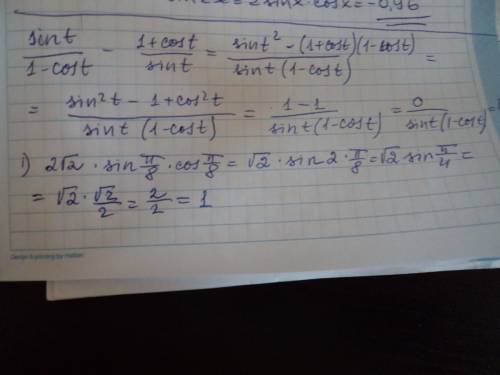 sin2x = 2sinx·cosx = -0,96
sint/(1-cost) - (1+cost)/sint = (sint² - (1+cost)(1-cost))/(sint(1-cost)) =
= (sin²t - 1 + cos²t)/(sint(1-cost)) = (1-1)/(sint(1-cost)) = 0/(sint(1-cost) =
1) 2√2 · sin π/8 · cos π/8 = √2 · sin 2 · π/8 = √2 sin π/4 =
= √2 · √2/2 = 2/2 = 1